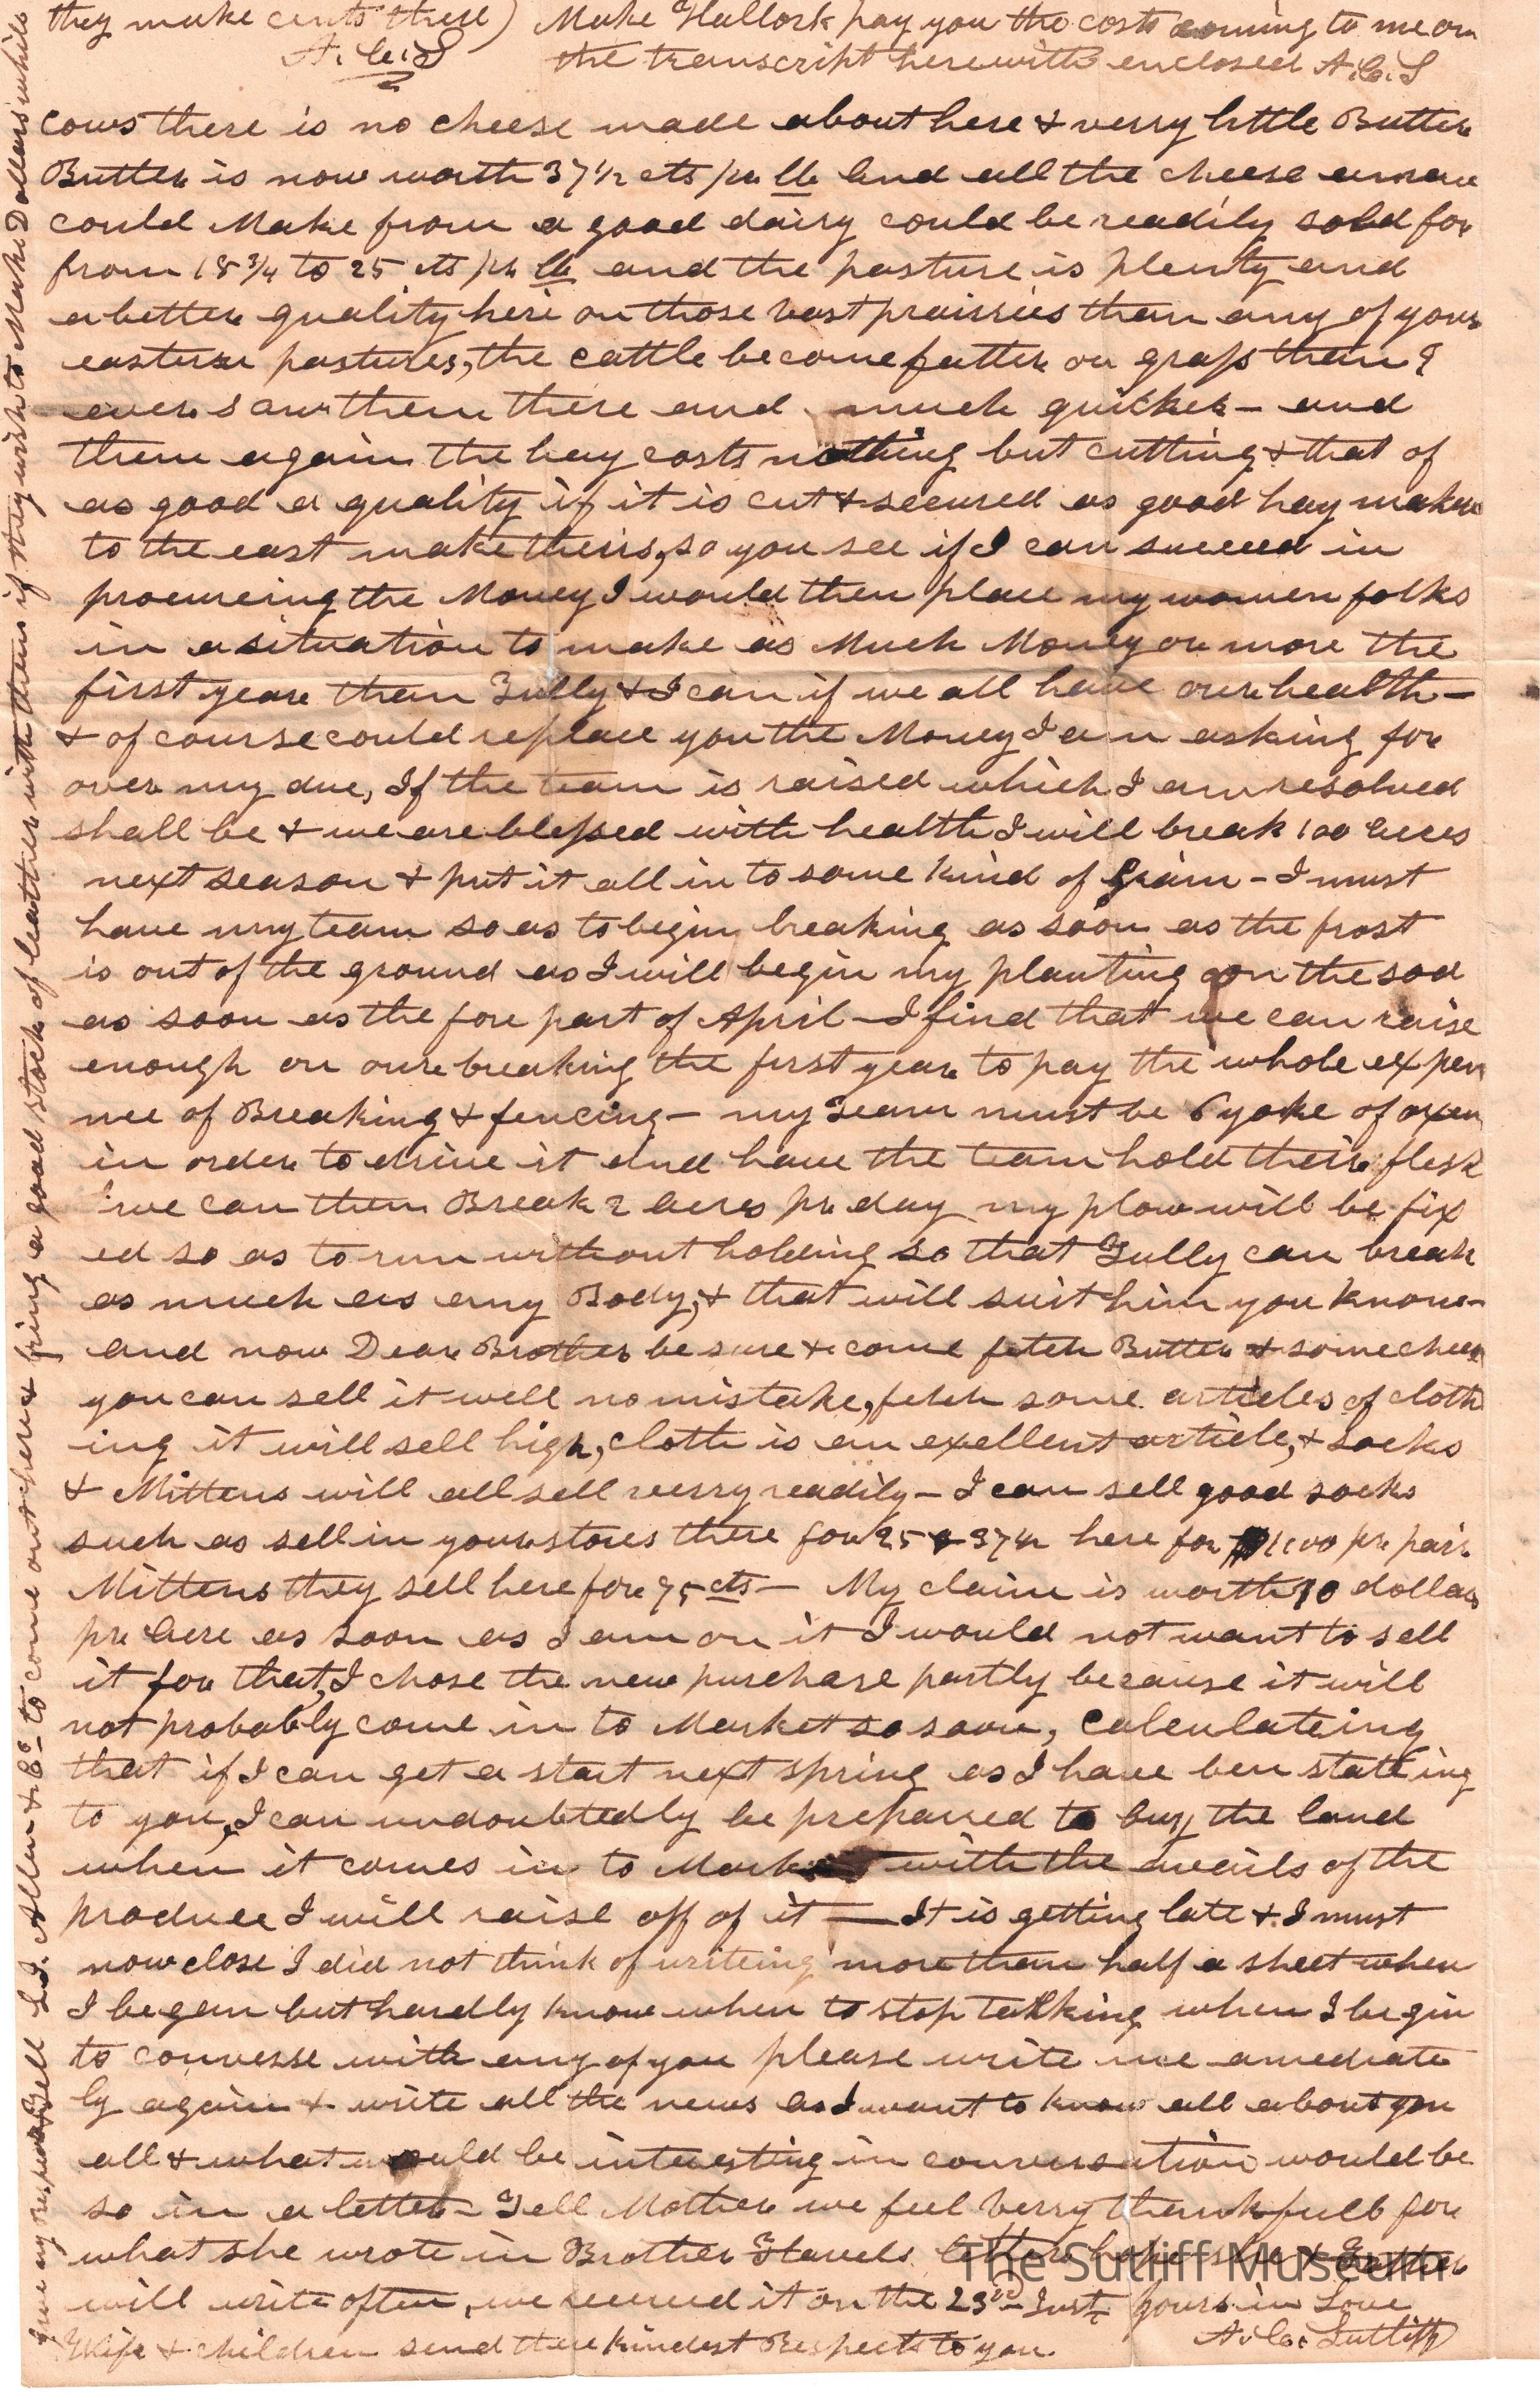 they make cents there) Make Hallock pay you the costs coming to me on
A. C. S the transcript herewith enclosed A. C. S
cows there is no cheese made about here & verry little Butter
Butter is now worth 37 1/2 cts pr lb and all the cheese a man
could Make from a good dairy could be readily sold for
from 18 3/4 to 25 cts pr lb and the pasture is plenty and
a better quality here on those vast prairies than any of your
eastern pastures, the cattle become fatter on grass than I
ever saw them there and much quicker - and
then again the hay costs nothing but cutting & that of
as good a quality if it is cut & secured as good hay makers
to the east make theirs, so you see if I can succeed in
procureing the Money I would then place my women folks
in a situation to make as Much Money or more the
first year than Tully & I can if we all have our health -
& of course could replace you the Money I am asking for
over my due, If the team is raised which I am resolved
shall be & we are blessed with health I will break 100 acres
next season & put it all in to some kind of Grain - I must
have my team so as to begin breaking as soon as the frost
is out of the ground as I will begin my planting on the sod
as soon as the fore part of April - I find that we can raise
enough on our breaking the first year to pay the whole expen
nce of Breaking & fencing - my Team must be 6 yoke of oxen
in order to drive it and have the team hold their flesh
we can then Break 2 acres pr day my plow will be fix
ed so as to run without holding so that Tully can break
as much as any Body, & that will suit him you know -
and now Dear Brother be sure & come fetch Butter & some cheese
you can sell it well no mistake, fetch some articles of cloth
ing it will sell high, cloth is an exellent article, & socks
& Mittens will all sell verry readily - I can sell good socks
such as sell in your stores there for 25 & 37 1/2 here for 1.00 pr pair
Mittens they sell here for 75 cts - My claim is worth 10 dollars
pr acre as soon as I am on it I would not want to sell
it for that, I chose the new purchase partly because it will
not probably come in to Market so soon, calculateing
that if I can get a start next spring as I have ben stateing
to you, I can undoubtedly be prepared to buy the land
when it comes in to Market with the avails of the
produce I will raise off of it - It is getting late & I must
now close I did not think of writeing more than half a sheet when
I began but hardly know when to stop talking when I begin
to converse with any of you please write me amediate
ly again & write all the news as I want to know all about you
all & what would be interesting in conversation would be
so in a letter - Tell Mother we feel verry thankfull for
what she wrote in Brother Flavels letter hope she & Father
will write often, we received it on the 23rd Inst yours in Love
Wife & children send there kindest Respects to you. A. C. Sutliff
give my respects Tell L. J. Allen & Co - to come out here & bring a good stock of leather with them if they wish to Make Dollars while
The Sutliff Museum